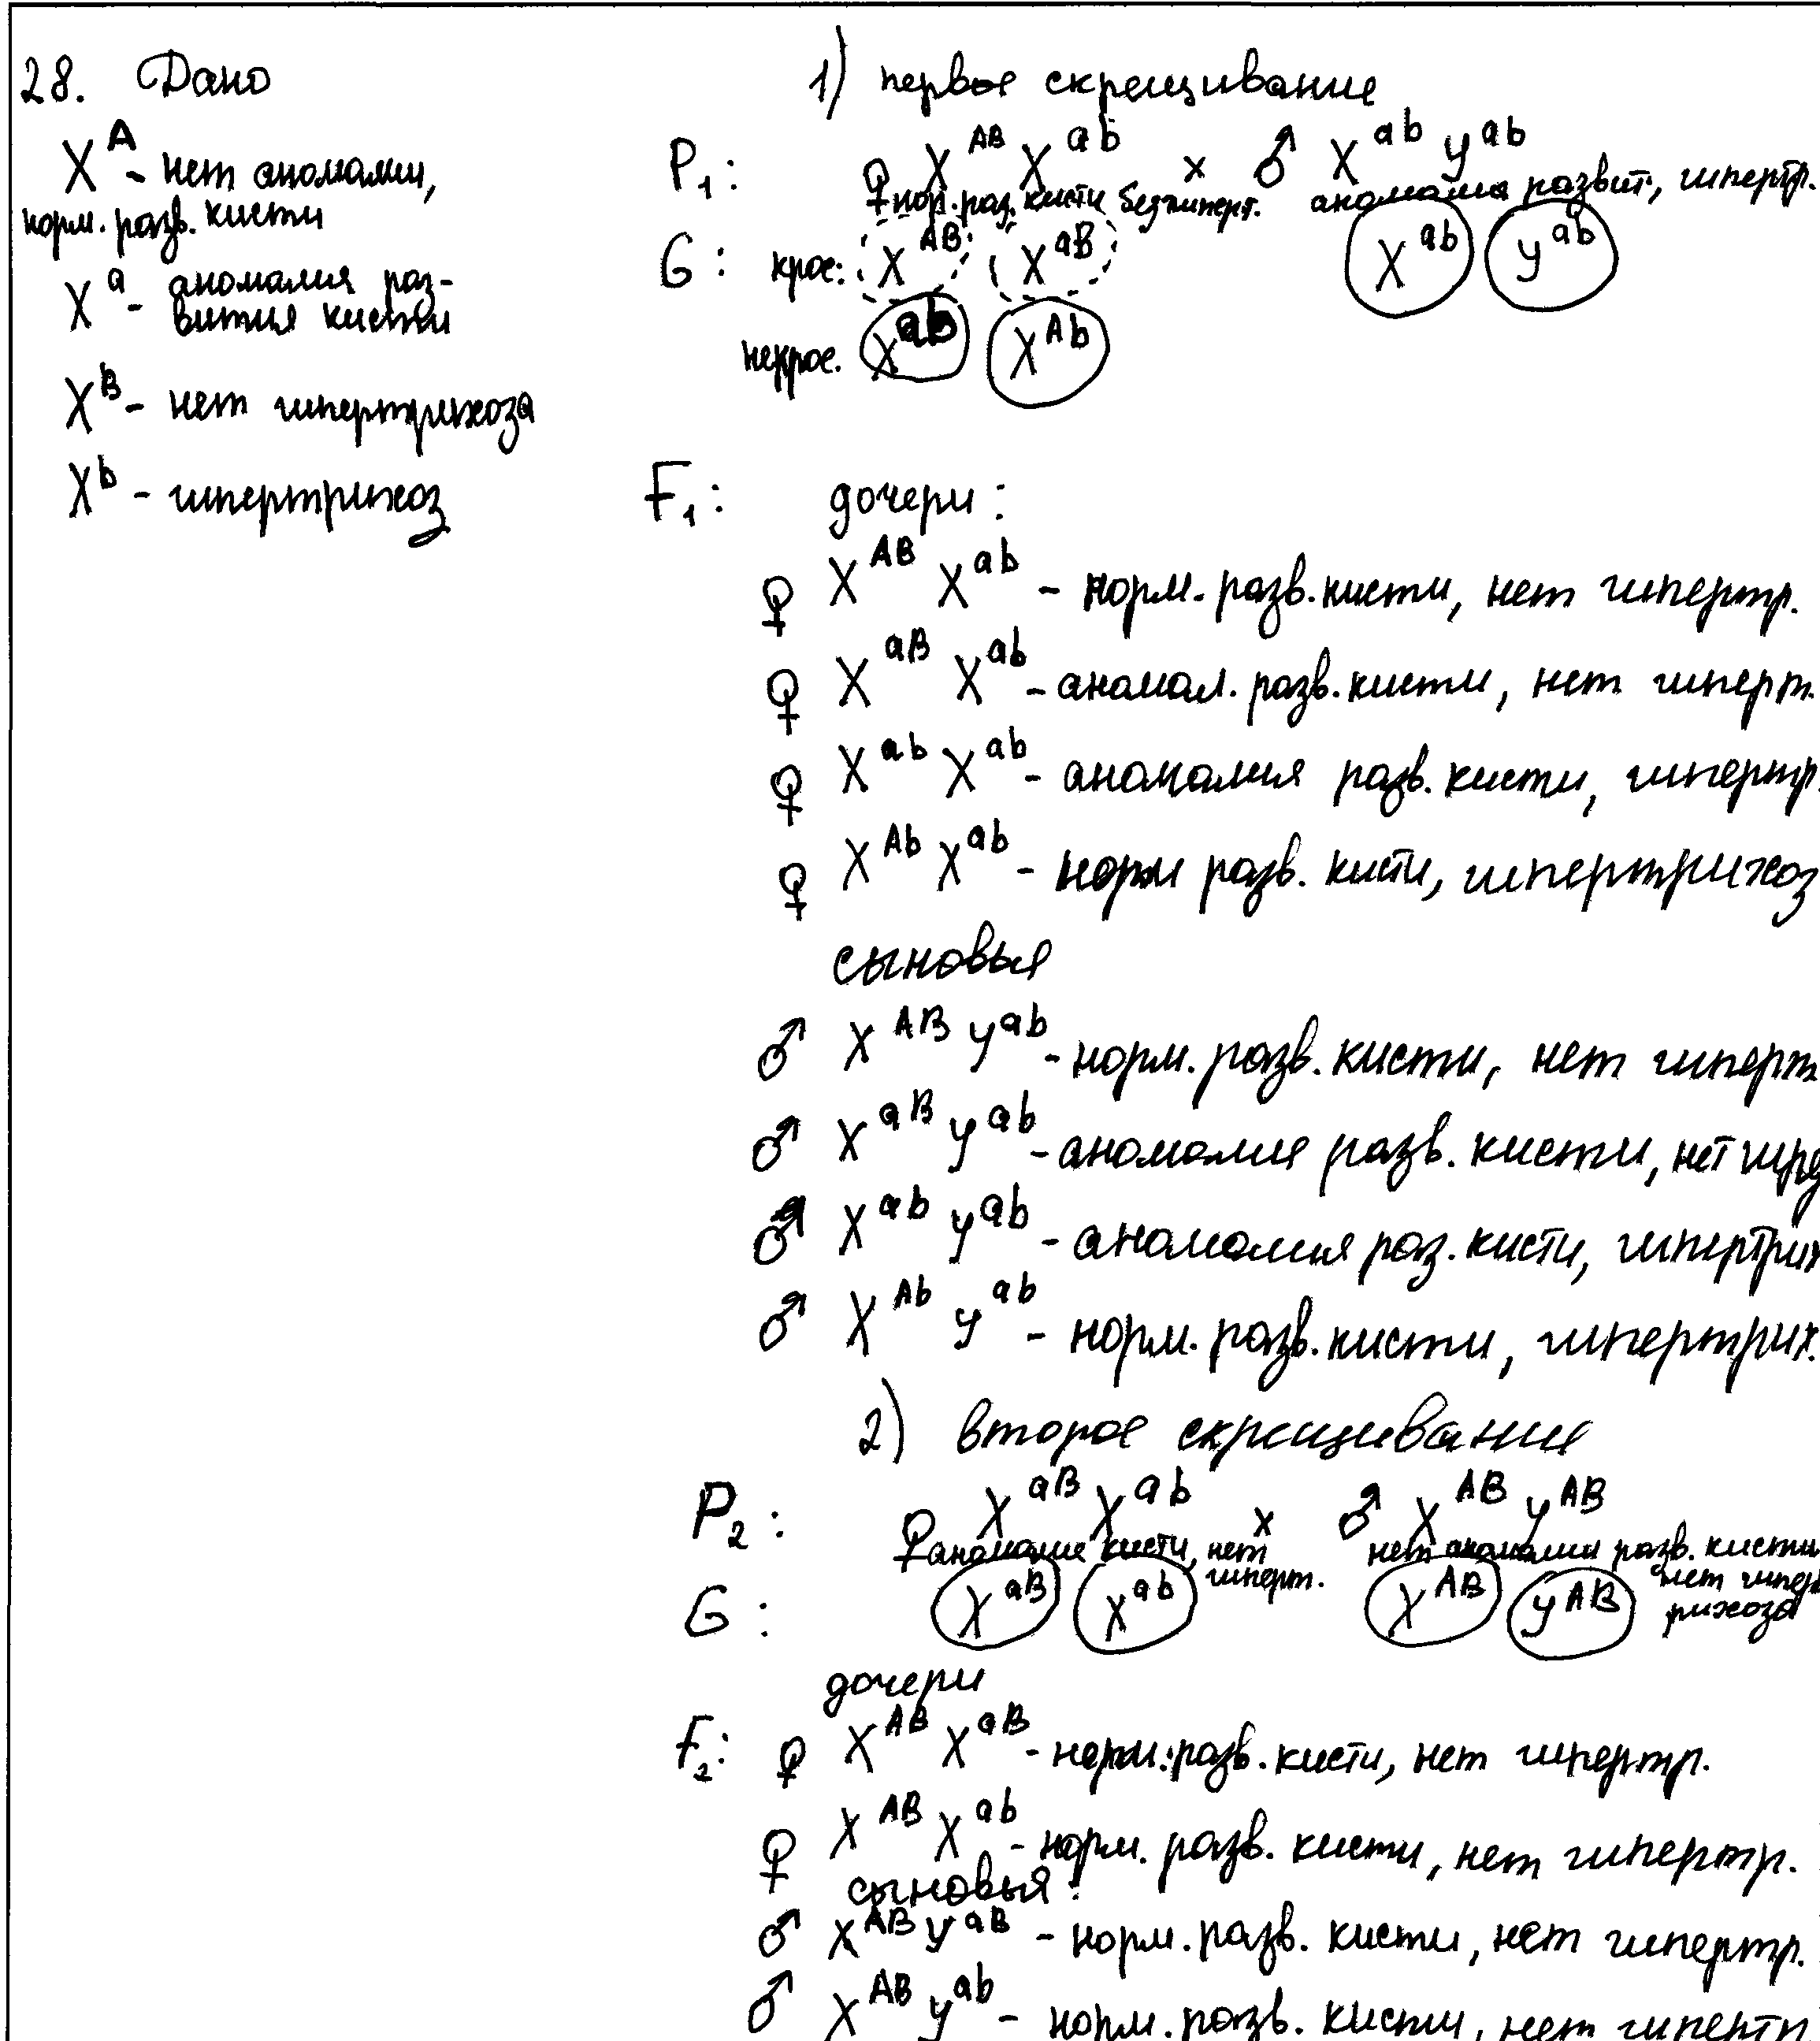 28. Дано
X^A - нет аномалии,
норм. разв. кисти
X^a - аномалия раз-
вития кисти
X^B - нет гипертрихоза
X^b - гипертрихоз
1) первое скрещивание
P₁: ♀ X^AB X^ab x ♂ X^ab y^ab
нор. раз. кисти без гиперт. аномалия развит., гипертр.
G: крос: X^AB X^aB X^ab y^ab
некрос. X^ab X^Ab
F₁: дочери:
♀ X^AB X^ab - норм. разв. кисти, нет гипертр.
♀ X^aB X^ab - аномал. разв. кисти, нет гиперт.
♀ X^ab X^ab - аномалия разв. кисти, гипертр.
♀ X^Ab X^ab - норм разв. кисти, гипертрихоз
сыновья
♂ X^AB y^ab - норм. разв. кисти, нет гиперт
♂ X^aB y^ab - аномалия разв. кисти, нет
♂ X^ab y^ab - аномалия раз. кисти, гипертрих
♂ X^Ab y^ab - норм. разв. кисти, гипертрих.
2) второе скрещивание
P₂: ♀ X^aB X^ab x ♂ X^AB y^AB
аномалия кисти, нет гиперт. нет аномалии разв. кисти
нет гиперт
рихоза
G: X^aB X^ab X^AB y^AB
дочери
F₂: ♀ X^AB X^aB - норм. разв. кисти, нет гипертр.
♀ X^AB X^ab - норм. разв. кисти, нет гипертр.
сыновья:
♂ X^AB y^aB - норм. разв. кисти, нет гипертр.
♂ X^AB y^ab - норм. разв. кисти, нет гипертр